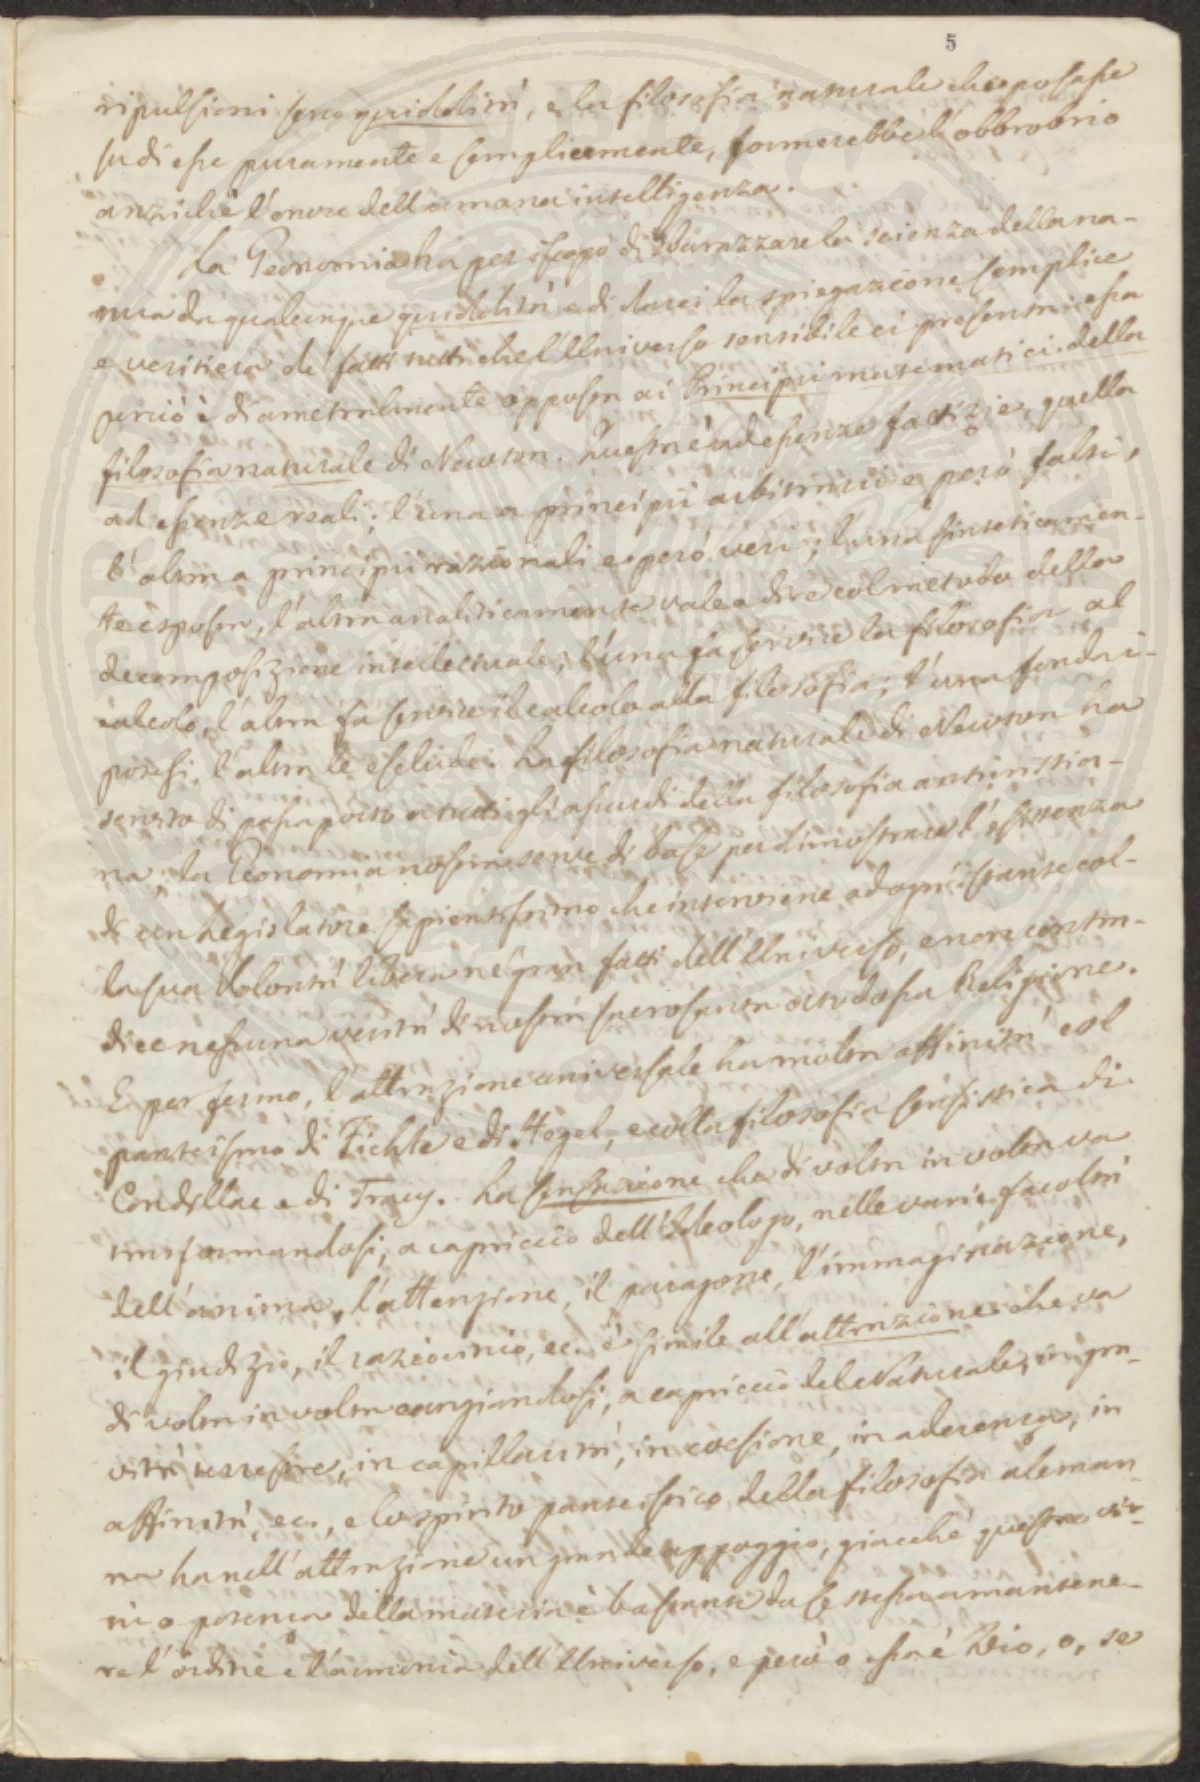 5
ripulsioni sono quiddità, e la filosofia naturale che posasse
su di esse puramente e semplicemente, formerebbe l'obbrobrio
anzichè l'onore dell'umana intelligenza.
La Geonomia ha per iscopo di sbarazzare la scienza della na-
tura da qualunque quiddità e di darci la spiegazione semplice
e veritiera de' fatti tutti che l'Universo sensibile ci presenta: essa
perciò è diametralmente opposta ai Principii matematici della
filosofia naturale di Newton. Questa è ad essenze fattizie, quella
ad essenze reali; l'una a principii arbitrarii e però falsi,
l'altra a principii razionali e però veri; l'una sinteticamen-
te esposta, l'altra analiticamente vale a dire col metodo della
decomposizione intellettuale; l'una fa servire la filosofia al
calcolo, l'altra fa servire il calcolo alla filosofia; l'una fonda i-
potesi, l'altra le esclude. La filosofia naturale di Newton ha
servito di passaporto a tutti gli assurdi della filosofia anticristia-
na; la Geonomia nostra serve di base per dimostrare l'esistenza
di un Legislatore sapientissimo che interviene ad ogni istante col-
la sua Volontà libera ne' gran fatti dell'Universo, e non contra-
dice nessuna verità di nostra sacrosanta ortodossa Religione.
E per fermo, l'attrazione universale ha molta affinità col
panteismo di Fichte e di Hegel, e colla filosofia sensistica di
Condillac e di Tracy. La sensazione che di volta in volta va
trasformandosi, a capriccio dell'Ideologo, nelle varie facoltà
dell'anima, l'attenzione, il paragone, l'immaginazione,
il giudizio, il raziocinio, ec. è simile all'attrazione che va
di volta in volta cangiandosi, a capriccio del Naturale, in gra-
vità terrestre, in capillarità, in coesione, in aderenza, in
affinità, ec., e lo spirito panteistico della filosofia aleman-
na ha nell'attrazione un grande appoggio, giacchè questa vir-
tù o potenza della materia è bastante da se stessa a mantene-
re l'ordine e l'armonia dell'Universo, e però o essa è Dio, o, se